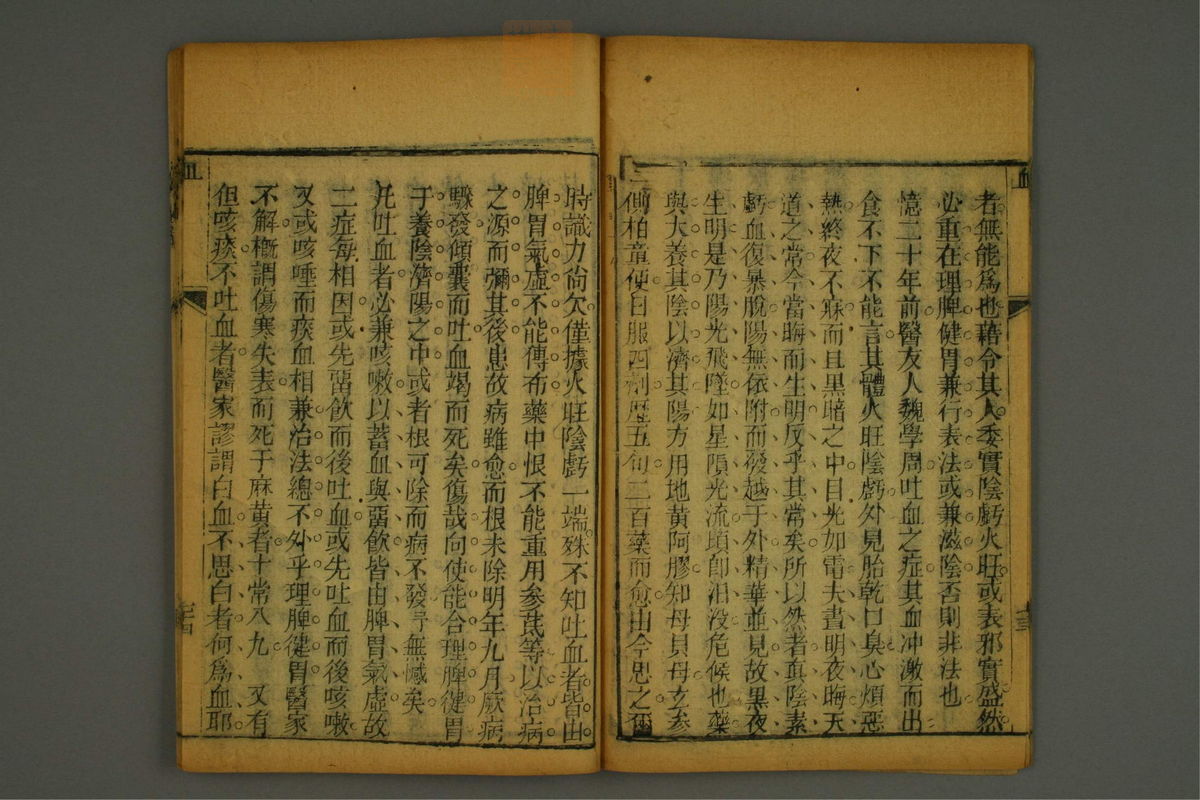 者無能爲也藉令其人委實陰虧火旺或表邪實盛然
必重在理脾健胃兼行表法或兼滋陰否則非法也
憶二十年前醫友人魏學周吐血之症其血冲激而出
食不下不能言其體火旺陰虧外見胎乾口臭心煩惡
熱終夜不寐而且黑暗之中目光如電夫晝明夜晦天
道之常今當晦而生明反乎其常矣所以然者眞陰素
虧血復暴脫陽無依附而發越于外精華並見故黑夜
生明是乃陽光飛墜如星隕光流頃卽泪没危候也藥
與大養其陰以濟其陽方用地黄阿膠知母貝母玄參
側柏童便日服四劑歴五旬二百藥而愈由今思之爾
時識力尙欠僅據火旺陰虧一端殊不知吐血者皆由
脾胃氣虛不能傳布藥中恨不能重用參芪等以治病
之源而彌其後患故病雖愈而根未除明年九月厥病
驟發傾囊而吐血竭而死矣傷哉向使能合理脾健胃
于養陰濟陽之中或者根可除而病不發吾無憾矣
凡吐血者必兼咳嗽以蓄血與留飲皆由脾胃氣虛故
二症每相因或先留飲而後吐血或先吐血而後咳嗽
又或咳唾而痰血相兼治法總不外乎理脾健胃醫家
不解概謂傷寒失表而死于麻黄者十常八九 又有
但咳痰不吐血者醫家謬謂白血不思白者何爲血耶
血
血